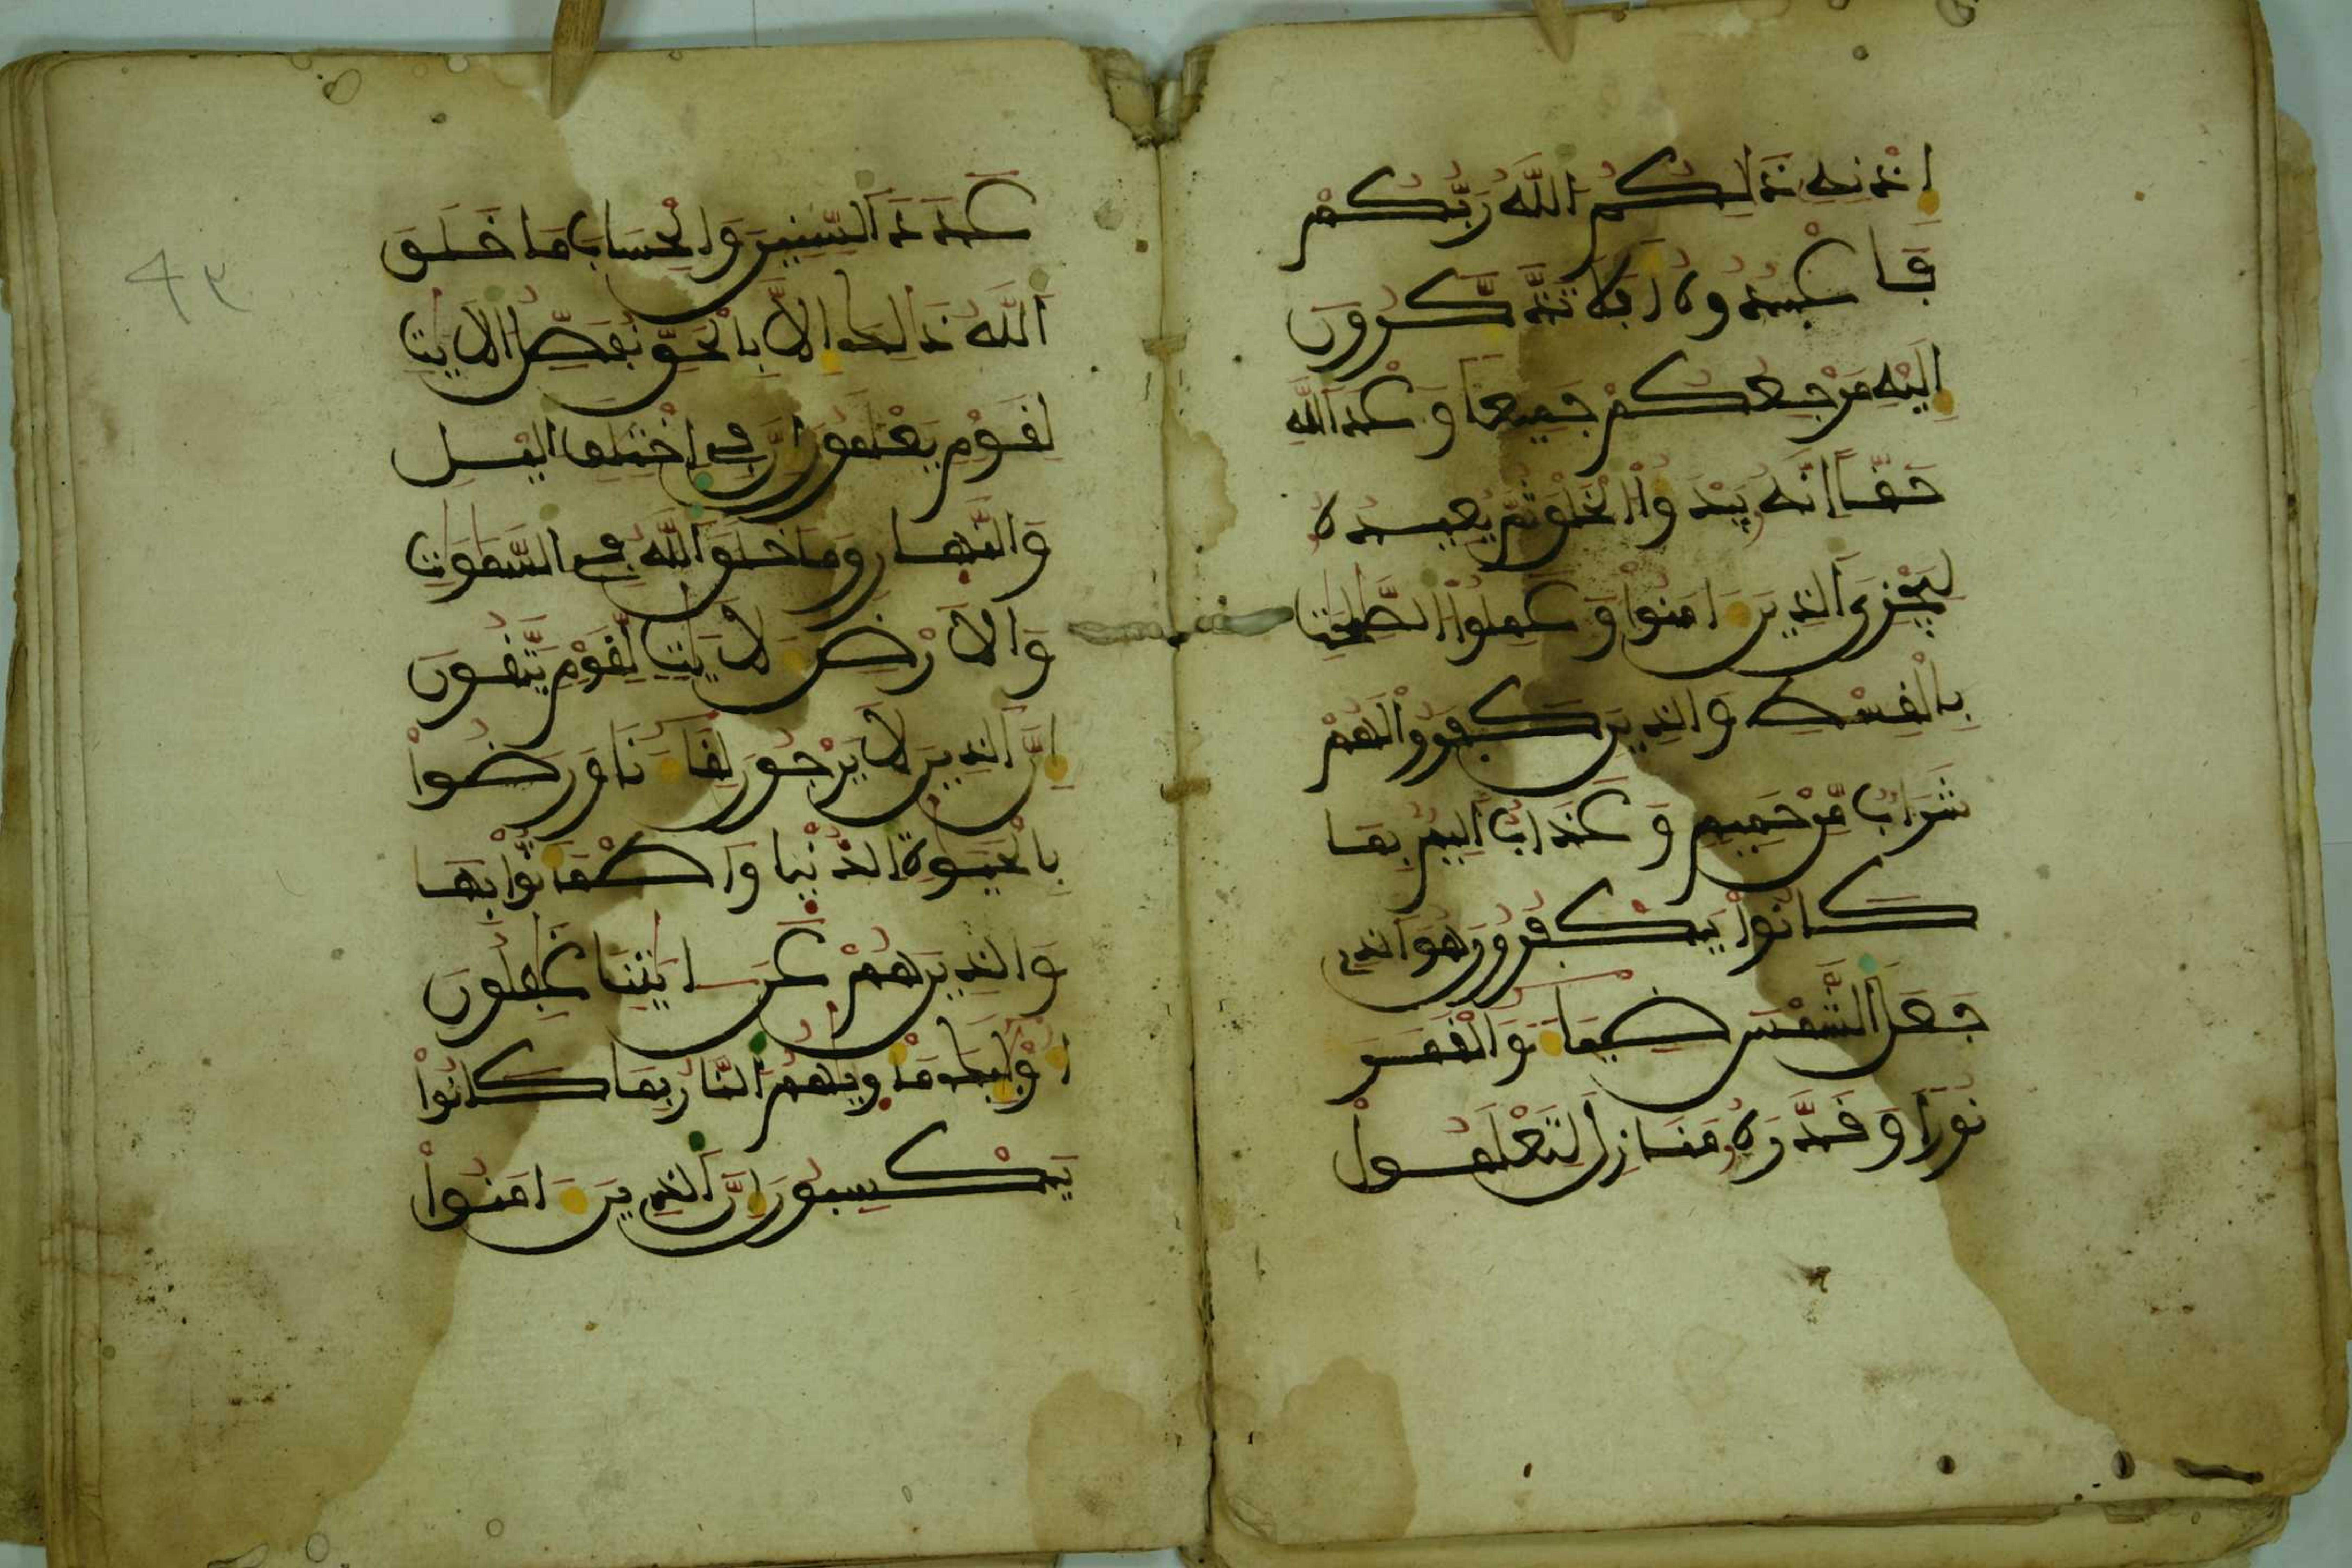 اِذْنِهِ ذَالِكُمُ اللَّهُ رَبُّكُمْ
فَاعْبُدُوهُ أَفَلَا تَذَّكَّرُونَ
إِلَيْهِ مَرْجِعُكُمْ جَمِيعًا وَعْدَ اللَّهِ
حَقًّا إِنَّهُ يَبْدَؤُا الْخَلْقَ ثُمَّ يُعِيدُهُ
لِيَجْزِيَ الَّذِينَ ءَامَنُواْ وَعَمِلُواْ الصَّلِحَتِ
بِالْقِسْطِ وَالَّذِينَ كَفَرُواْ لَهُمْ
شَرَابٌ مِّنْ حَمِيمٍ وَعَذَابٌ أَلِيمٌ بِمَا
كَانُواْ يَكْفُرُونَ هُوَ الَّذِي
جَعَلَ الشَّمْسَ ضِيَاءً وَالْقَمَرَ
نُورًا وَقَدَّرَهُ مَنَازِلَ لِتَعْلَمُواْ
عَدَدَ السِّنِينَ وَالْحِسَابَ مَا خَلَقَ
اللَّهُ ذَالِكَ إِلَّا بِالْحَقِّ نُفَصِّلُ الْأَيَتِ
لِقَوْمٍ يَعْلَمُونَ إِنَّ فِي اخْتِلَفِ الَّيْلِ
وَالنَّهَارِ وَمَا خَلَقَ اللَّهُ فِي السَّمَوَتِ
وَالْأَرْضِ لَأَيَتٍ لِّقَوْمٍ يَتَّقُونَ
إِنَّ الَّذِينَ لَا يَرْجُونَ لِقَاءَنَا وَرَضُواْ
بِالْحَيَوةِ الدُّنْيَا وَاطْمَأَنُّواْ بِهَا
وَالَّذِينَ هُمْ عَنْ ءَايَتِنَا غَفِلُونَ
أُوْلَئِكَ مَأْوَيهُمُ النَّارُ بِمَا كَانُواْ
يَكْسِبُونَ إِنَّ الَّذِينَ ءَامَنُواْ